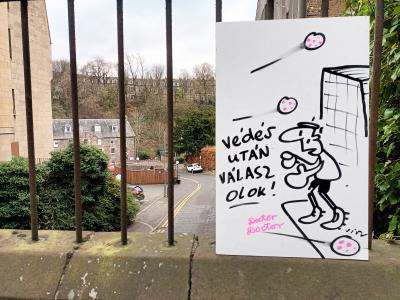 védés
UTÁN
VÁLASZ
OLOK!
Doctor
Doctor